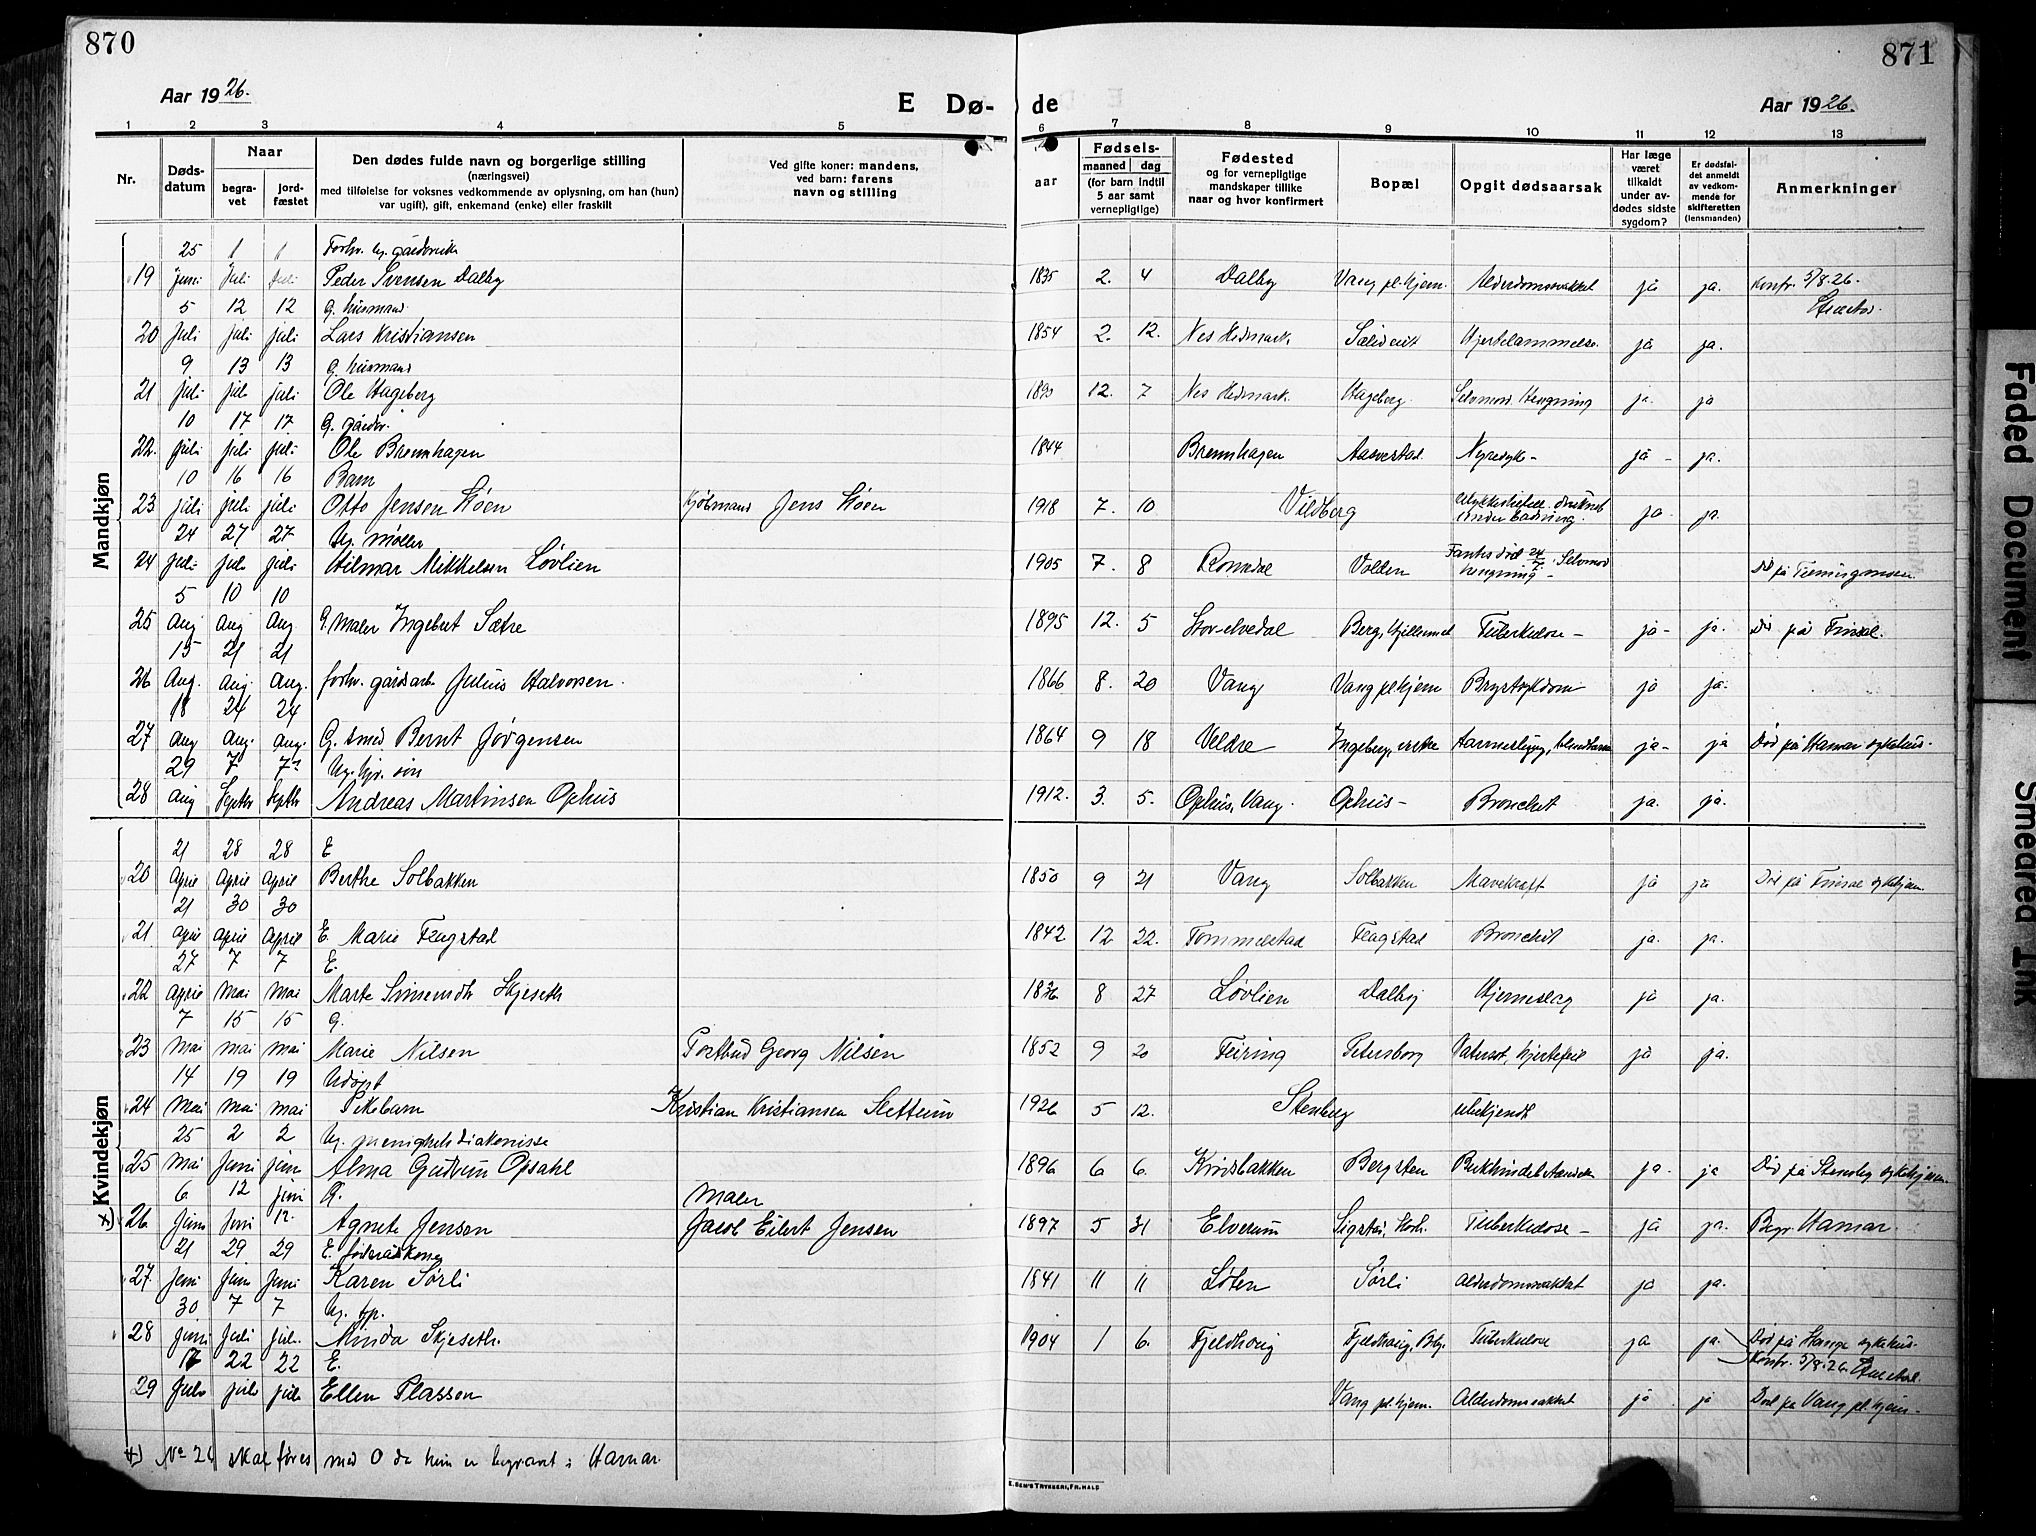 870
871
Aar 1926.
E Dø-
de
Aar 1926.
1 2 3 4 5 6 7 8 9 10 11 12 13
Nr.
Døds-
datum
Naar
begra-
vet
jord-
fæstet
Den dødes fulde navn og borgerlige stilling
(næringsvei)
med tilføielse for voksnes vedkommende av oplysning, om han (hun)
var ugift), gift, enkemand (enke) eller fraskilt
Ved gifte koner: mandens,
ved barn: farens
navn og stilling
aar
Fødsels-
maaned dag
(for barn indtil
5 aar samt
vernepligtige)
Fødested
og for vernepligtige
mandskaper tillike
naar og hvor konfirmert
Bopæl
Opgit dødsaarsak
Har læge
været
tilkaldt
under av-
dødes sidste
sygdom?
Er dødsfal-
det anmeldt
av vedkom-
mende for
skifteretten
(lensmanden)
Anmerkninger
Mandkjøn
25 1 1 Forhv. ug.
19 Juni Juli Juli Peder Svensen Dalby 1835 2. 4 Dalby Vang pl.hjem. Alderdomssvakhet ja ja. Konfr. 5/8.26.
5 12 12 G. husmand
20 Juli juli juli Lars Kristiansen 1854 2. 12. Nes Hedmark. Hjertelammelse. ja ja.
9 13 13 G. husmand
21 juli juli juli Ole Hageberg 12. 7 Nes Hedmark. Hageberg. Selvmord Hengning ja. ja
10 17 17 G. gårdbr.
22. juli juli juli Ole Brennhagen 1844 Brennhagen Aasvestad Nyresyke- ja - ja.
10 16 16 Barn
23 juli juli juli Otto Jensen Støen Kjøbmand Jens Støen 1918 7. 10 Vildberg Ulykkestilfelle druknet
under badning. ja. ja.
24 27 27 Ug. møller
24 juli juli juli Hilmar Mikkelsen Løvlien 1905 7. 8 Romedal Vollen Fantes død 24/7 Selvmord
hengning - Død på
5 10 10
25 Aug Aug Aug. G. Maler Ingebert Sætre 1895 12. 5 Stor-elvedal Berg, Tuberkulose - ja - ja. Død på Finsal.
15 21 21
26 Aug. Aug. Aug. forhv. gårdsarb. Julius Halvorsen. 1866 8. 20 Vang Vang pl.hjem Brystsykdom ja ja.
18 24 24
27 Aug Aug. Aug. G. smed Bernt Jørgensen 1864 9 18 Veldre ja - ja Død på Hamar sykehus.
29 7 7 Ug. gbr. søn
28 Aug Septbr Septbr Andreas Martinsen Ophus 1912. 3. 5. Ophus, Vang. Ophus - Bronchit ja. ja.
Kvindekjøn
21 28 28 E
20 April April April Berthe Solbakken 1850 9 21 Vang Solbakken Mavekræft ja ja Død på Finsal sykehjem
21 30 30
21 April April April E. Marie Flagstad 1842 12 22. Tommelstad Flagstad Bronchit ja. ja.
27 7 7 E.
22 April Mai Mai Marte Simensdtr Skjeseth 1836 8 27 Løvlien Dalby Hjerneslag ja ja.
7 15 15 G.
23 Mai mai mai Marie Nilsen Postbud Georg Nilsen 1852 9 20 Feiring Petersborg Vatersot, hjertefeil ja ja.
14 19 19 Udøpt
24 Mai mai mai Pikebarn Kristian Kristiansen Sletteum 1926 5 12. Stenberg ubekjendt
25 2 2 Ug. menighetsdiakonisse
25 Mai Juni juni Alma Gudrun Opsahl 1896 6 6. Kvisbakken Bergsten ja. ja Død på Stensby sykehjem
6 12 juni G. Maler
x) 26 juni juni 12. Agnete Jensen Jacob Eilert Jensen 1897 5 31 Elverum Tuberkulose - ja ja. Begr. Hamar.
21 29 29 E. føderådskone
27 juni juni juni Karen Sørli 1841 11 11 Løten Sørli Alderdomssvakhet ja ja.
30 7 7 Ug. tjp.
28 juni juli juli Minda Skjeseth. 1904 1 6. Fjeldhoug Fjeldhaug, Tuberkulose ja ja. Død på Stange sykehus.
17 22 22 E. Konfr. 5/8.26.
29 Juli juli juli Ellen Plassen Vang pl.hjem. Alderdomssvakhet ja ja Død på Vang pl.hjem -
x) No 26 skal føres med 0 da hun er begravet i Hamar.
E. SEM'S TRYKKERI, FR.HALD
Faded Document
Smeared Ink